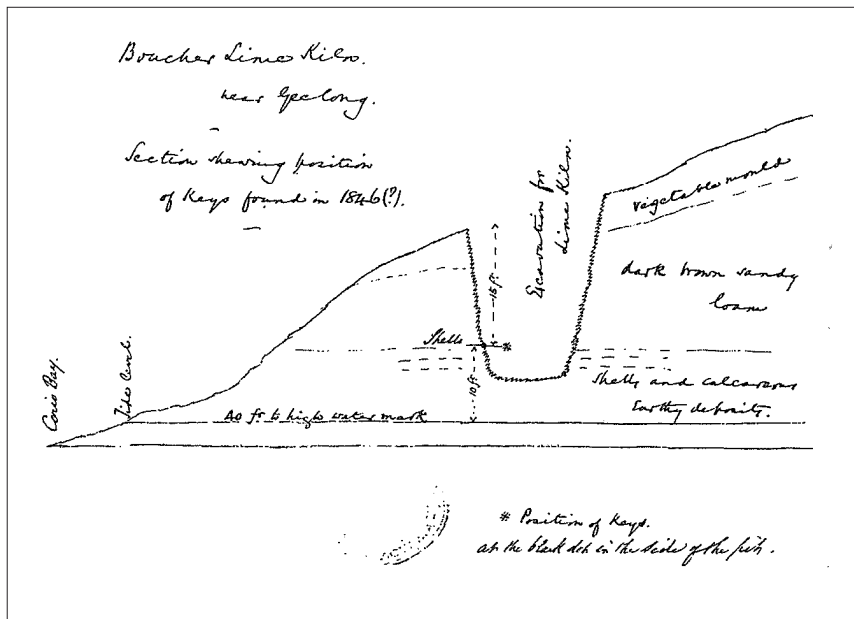 Boucher Lime Kiln.
near Geelong.
Section shewing position
of Keys found in 1846(?).
Excavation for
Lime Kiln.
vegetable mould
dark brown sandy
loam
15 ft
Shells
10 ft
Shells and calcareous
Earthy deposits.
Corio Bay.
Tide Level.
40 ft to high water mark
* Position of Keys.
at the black dot in the side of the pit.